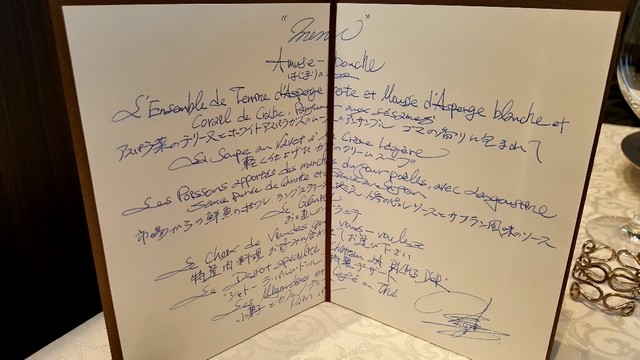 "Menu"
Amuse-bouche
はじまりの
L'Ensemble de Terrine d'Asperge verte et Mousse d'Asperge blanche et
Corail de Crabe, Parfum aux sésames
アスパラ菜のテリーヌとホワイトアスパラガスのムースのアンサンブル ゴマの香りに包まれて
La Soupe au Navet à la Crème légère
軽く仕上げた カブのクリームスープ
Les Poissons apportés des marchés du jour poêlés, avec Langoustine
Sauce purée de Carotte et Sauce au Safran
市場からの鮮魚のポワレ ラングスティーヌ添え 人参のピュレソースとサフラン風味のソース
Le Granité
お口直しのグラニテ
Le Choix de Viandes que vous-voulez
特選肉料理 お好みに合わせてお選び下さい
Le Dessert spécialité
特製デザート
Les Mignardises et Café ou Thé
小菓子とカフェ